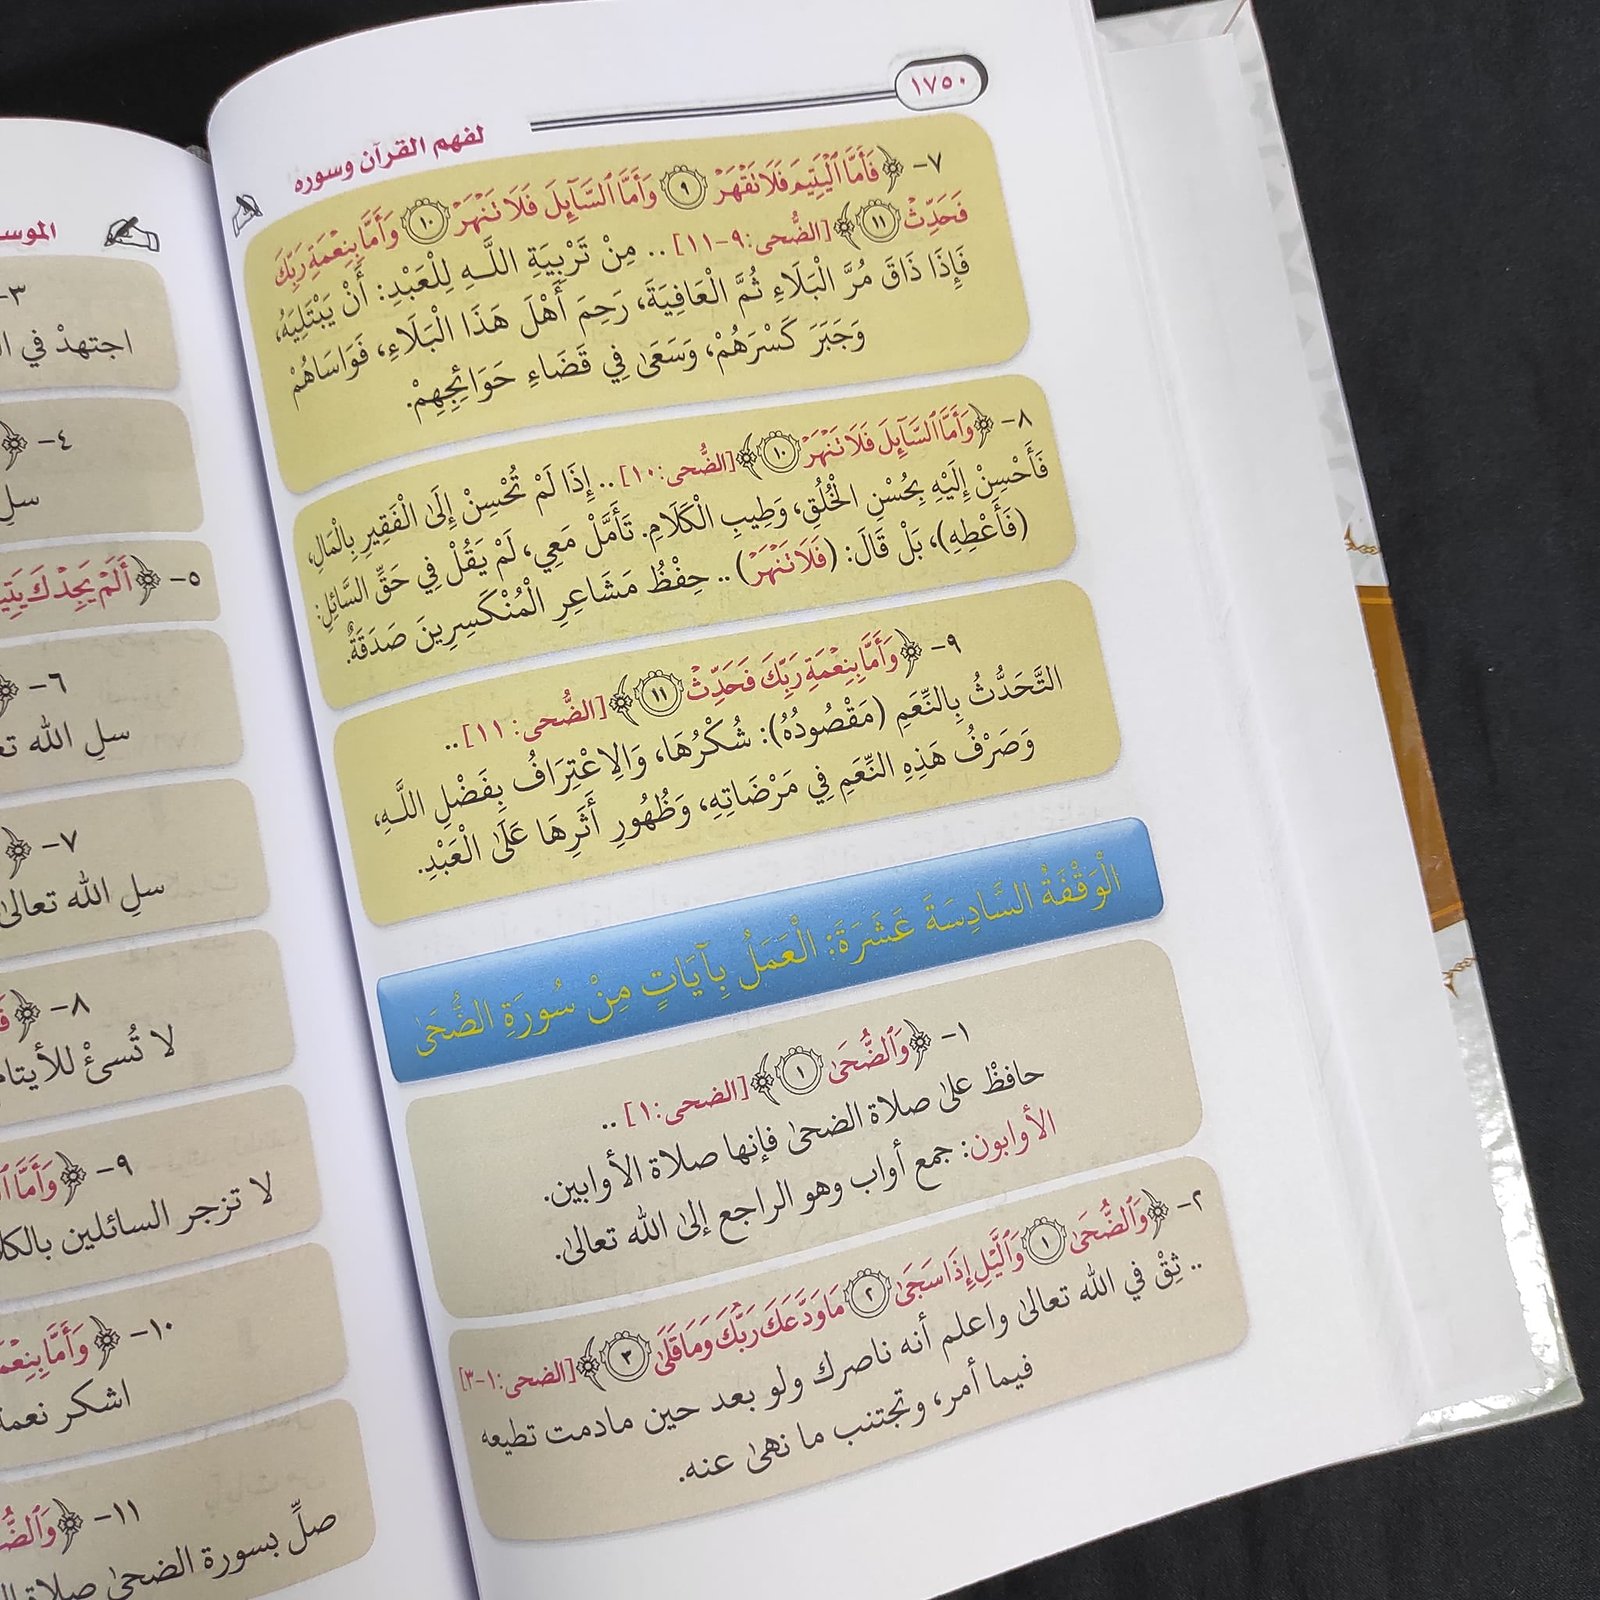 ١٧٥٠
لفهم القرآن وسوره
٧- ﴿فَأَمَّا ٱلْيَتِيمَ فَلَا تَقْهَرْ ٩ وَأَمَّا ٱلسَّآئِلَ فَلَا تَنْهَرْ ١٠ وَأَمَّا بِنِعْمَةِ رَبِّكَ
فَحَدِّثْ ١١﴾ [الضُّحى: ٩-١١] .. مِنْ تَرْبِيَةِ اللَّـهِ لِلْعَبْدِ: أَنْ يَبْتَلِيَهُ،
فَإِذَا ذَاقَ مُرَّ الْبَلَاءِ ثُمَّ الْعَافِيَةَ، رَحِمَ أَهْلَ هَذَا الْبَلَاءِ، فَوَاسَاهُمْ
وَجَبَرَ كَسْرَهُمْ، وَسَعَىٰ فِي قَضَاءِ حَوَائِجِهِمْ.
٨- ﴿وَأَمَّا ٱلسَّآئِلَ فَلَا تَنْهَرْ ١٠﴾ [الضُّحى: ١٠] .. إِذَا لَمْ تُحْسِنْ إِلَىٰ الْفَقِيرِ بِالْمَالِ،
فَأَحْسِنْ إِلَيْهِ بِحُسْنِ الْخُلُقِ، وَطِيبِ الْكَلَامِ. تَأَمَّلْ مَعِي، لَمْ يَقُلْ فِي حَقِّ السَّائِلِ:
(فَأَعْطِهِ)، بَلْ قَالَ: (فَلَا تَنْهَرْ) .. حِفْظُ مَشَاعِرِ الْمُنْكَسِرِينَ صَدَقَةٌ.
٩- ﴿وَأَمَّا بِنِعْمَةِ رَبِّكَ فَحَدِّثْ ١١﴾ [الضُّحى: ١١] ..
التَّحَدُّثُ بِالنِّعَمِ (مَقْصُودُهُ): شُكْرُهَا، وَالِاعْتِرَافُ بِفَضْلِ اللَّـهِ،
وَصَرْفُ هَذِهِ النِّعَمِ فِي مَرْضَاتِهِ، وَظُهُورِ أَثَرِهَا عَلَىٰ الْعَبْدِ.
الْوَقْفَةُ السَّادِسَةَ عَشَرَةَ: الْعَمَلُ بِآيَاتٍ مِنْ سُورَةِ الضُّحَىٰ
١- ﴿وَٱلضُّحَىٰ ١﴾ [الضحى: ١] ..
حافظْ علىٰ صلاة الضحىٰ فإنها صلاة الأوابين.
الأوابون: جمع أواب وهو الراجع إلىٰ الله تعالىٰ.
٢- ﴿وَٱلضُّحَىٰ ١ وَٱلَّيْلِ إِذَا سَجَىٰ ٢ مَا وَدَّعَكَ رَبُّكَ وَمَا قَلَىٰ ٣﴾ [الضحى: ١-٣]
.. ثِقْ في الله تعالىٰ واعلم أنه ناصرك ولو بعد حين مادمت تطيعه
فيما أمر، وتجتنب ما نهىٰ عنه.
٣-
اجتهدْ في
٤- ﴿
سلِ
٥- ﴿أَلَمْ يَجِدْكَ
٦- ﴿
سلِ الله
٧- ﴿
سلِ الله تعالىٰ
٨- ﴿
لا تُسئْ للأيتام
٩- ﴿وَأَمَّا
لا تزجر السائلين
١٠- ﴿وَأَمَّا
اشكر نعمة
١١-
صلِّ بسورة الضحىٰ صلاة